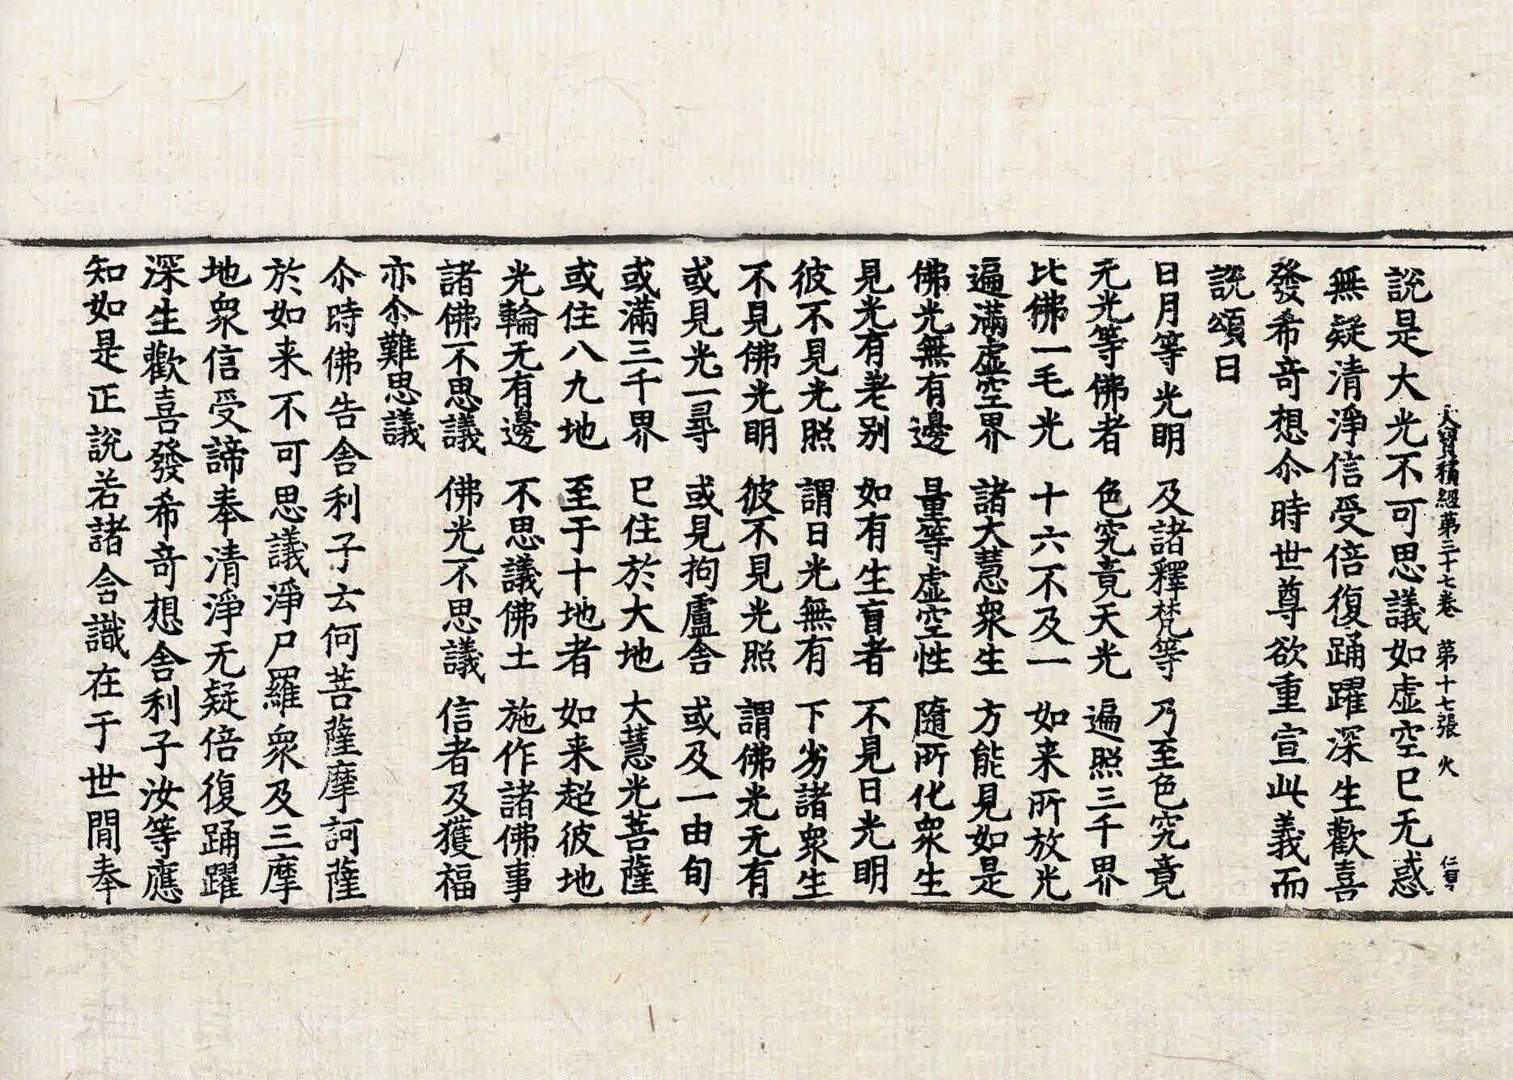 大寶積經第三十七卷 第十七張 火
說是大光不可思議如虛空已无惑
無疑清淨信受倍復踊躍深生歡喜
發希奇想尒時世尊欲重宣此義而
說頌曰
日月等光明 及諸釋梵等 乃至色究竟
无光等佛者 色究竟天光 遍照三千界
比佛一毛光 十六不及一 如来所放光
遍滿虛空界 諸大慧衆生 方能見如是
佛光無有邊 量等虛空性 隨所化衆生
見光有差别 如有生盲者 不見日光明
彼不見光照 謂日光無有 下劣諸衆生
不見佛光明 彼不見光照 謂佛光无有
或見光一尋 或見拘盧舍 或及一由旬
或滿三千界 已住於大地 大慧光菩薩
或住八九地 至于十地者 如来超彼地
光輪无有邊 不思議佛土 施作諸佛事
諸佛不思議 佛光不思議 信者及獲福
亦尒難思議
尒時佛告舍利子云何菩薩摩訶薩
於如来不可思議淨尸羅衆及三摩
地衆信受諦奉清淨无疑倍復踊躍
深生歡喜發希奇想舍利子汝等應
知如是正說若諸含識在于世閒奉